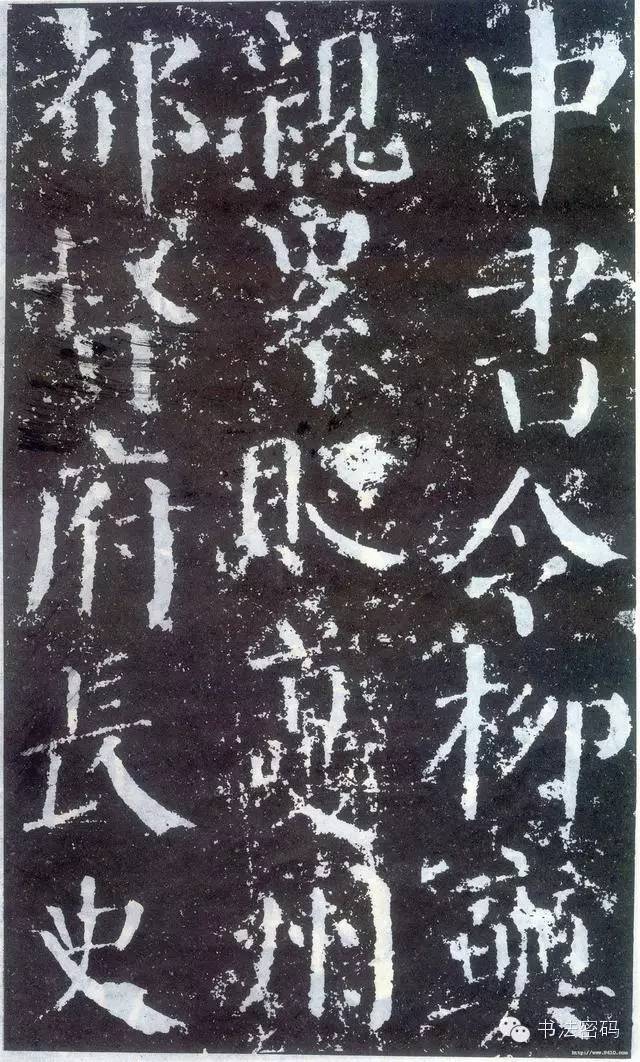 中書令柳奭
親累貶夔州
都督府長史
书法密码
http://www.9610.com